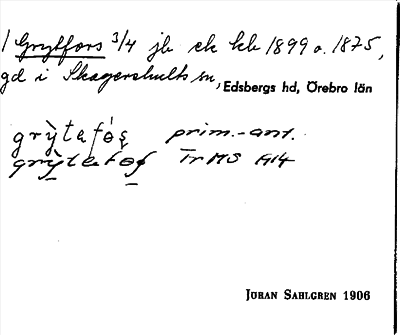 / Grytfors 3/4 jb ek kb 1899 o. 1875,
gd i Skagershults sn, Edsbergs hd, Örebro län
grỳtafó̀ş prim.-ant.
grỳtafo̱ʃ TrMS A14
JÖRAN SAHLGREN 1906